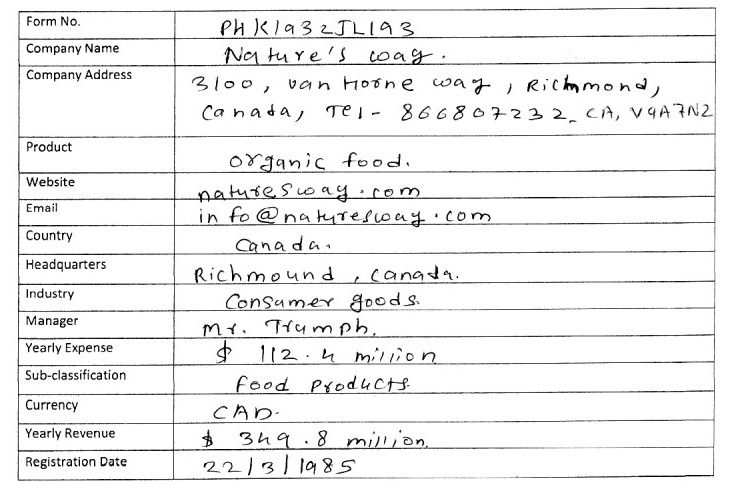 Form No. PHK1932JL193
Company Name Nature's way.
Company Address 3100, van Horne way, Richmond,
Canada, Tel- 866807232, CA, V9A7N2
Product organic food.
Website naturesway.com
Email info@naturesway.com
Country Canada.
Headquarters Richmound, Canada.
Industry Consumer goods.
Manager Mr. Trumph.
Yearly Expense $ 112.4 million
Sub-classification Food Products.
Currency CAD.
Yearly Revenue $ 349.8 million.
Registration Date 22/3/1985